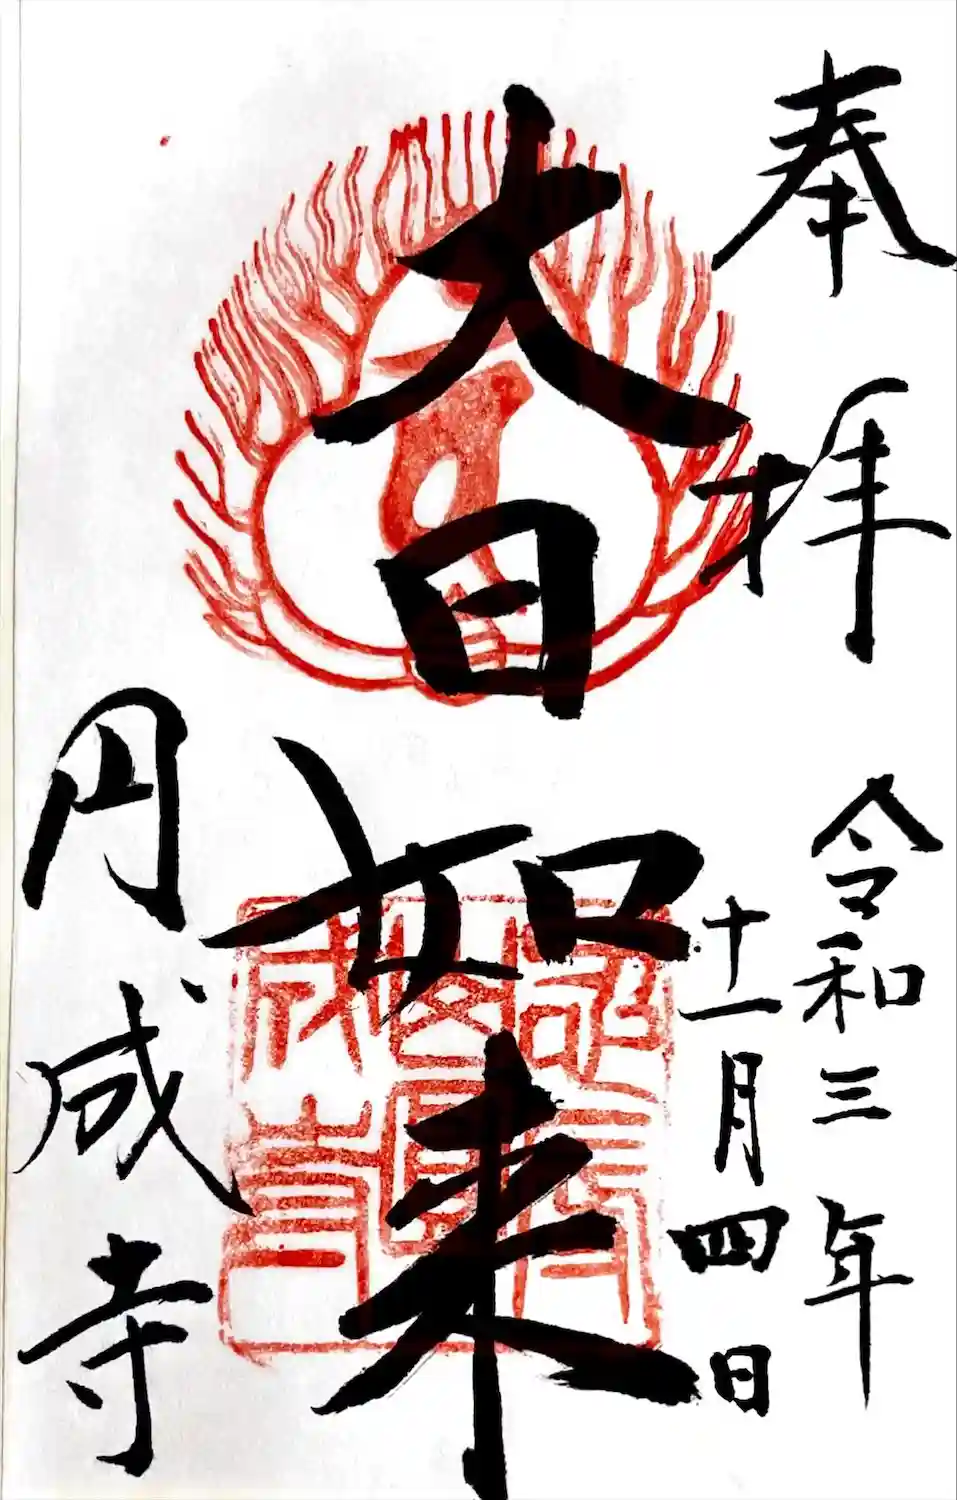 奉拝
令和三年
十一月四日
大日如来
円成寺